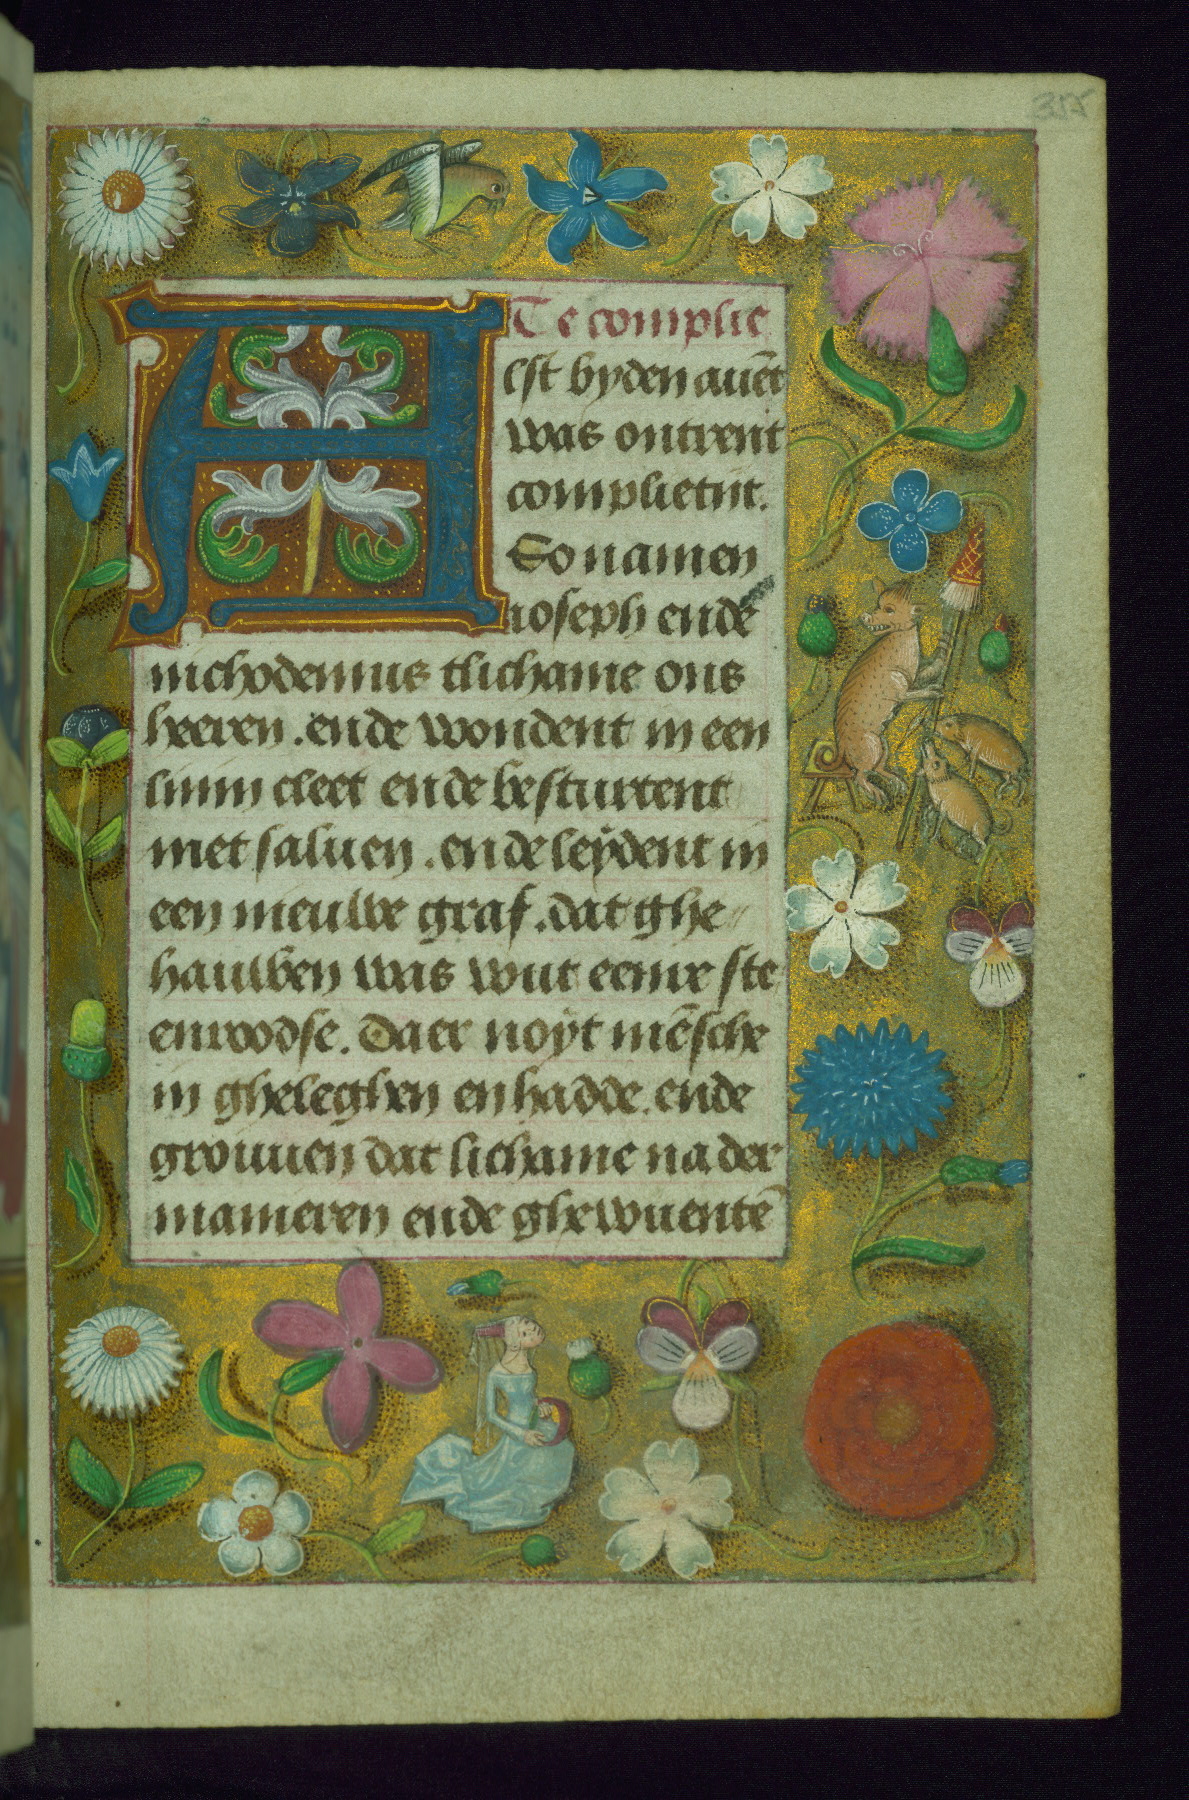 Te complie
Als t byden auēt
was ontrent
complietijt.
So namen
ioseph ende
nichodemus tlichame ons
heeren. ende wondent in een
linin cleet ende besturtent
met saluen. ende leÿdent in
een nieuwe graf. dat ghe
hauwen was wut eenre ste
enroodse. Daer noÿt mēsche
in gheleghen en hadde. ende
grouuen dat lichame na der
manieren ende ghewuente